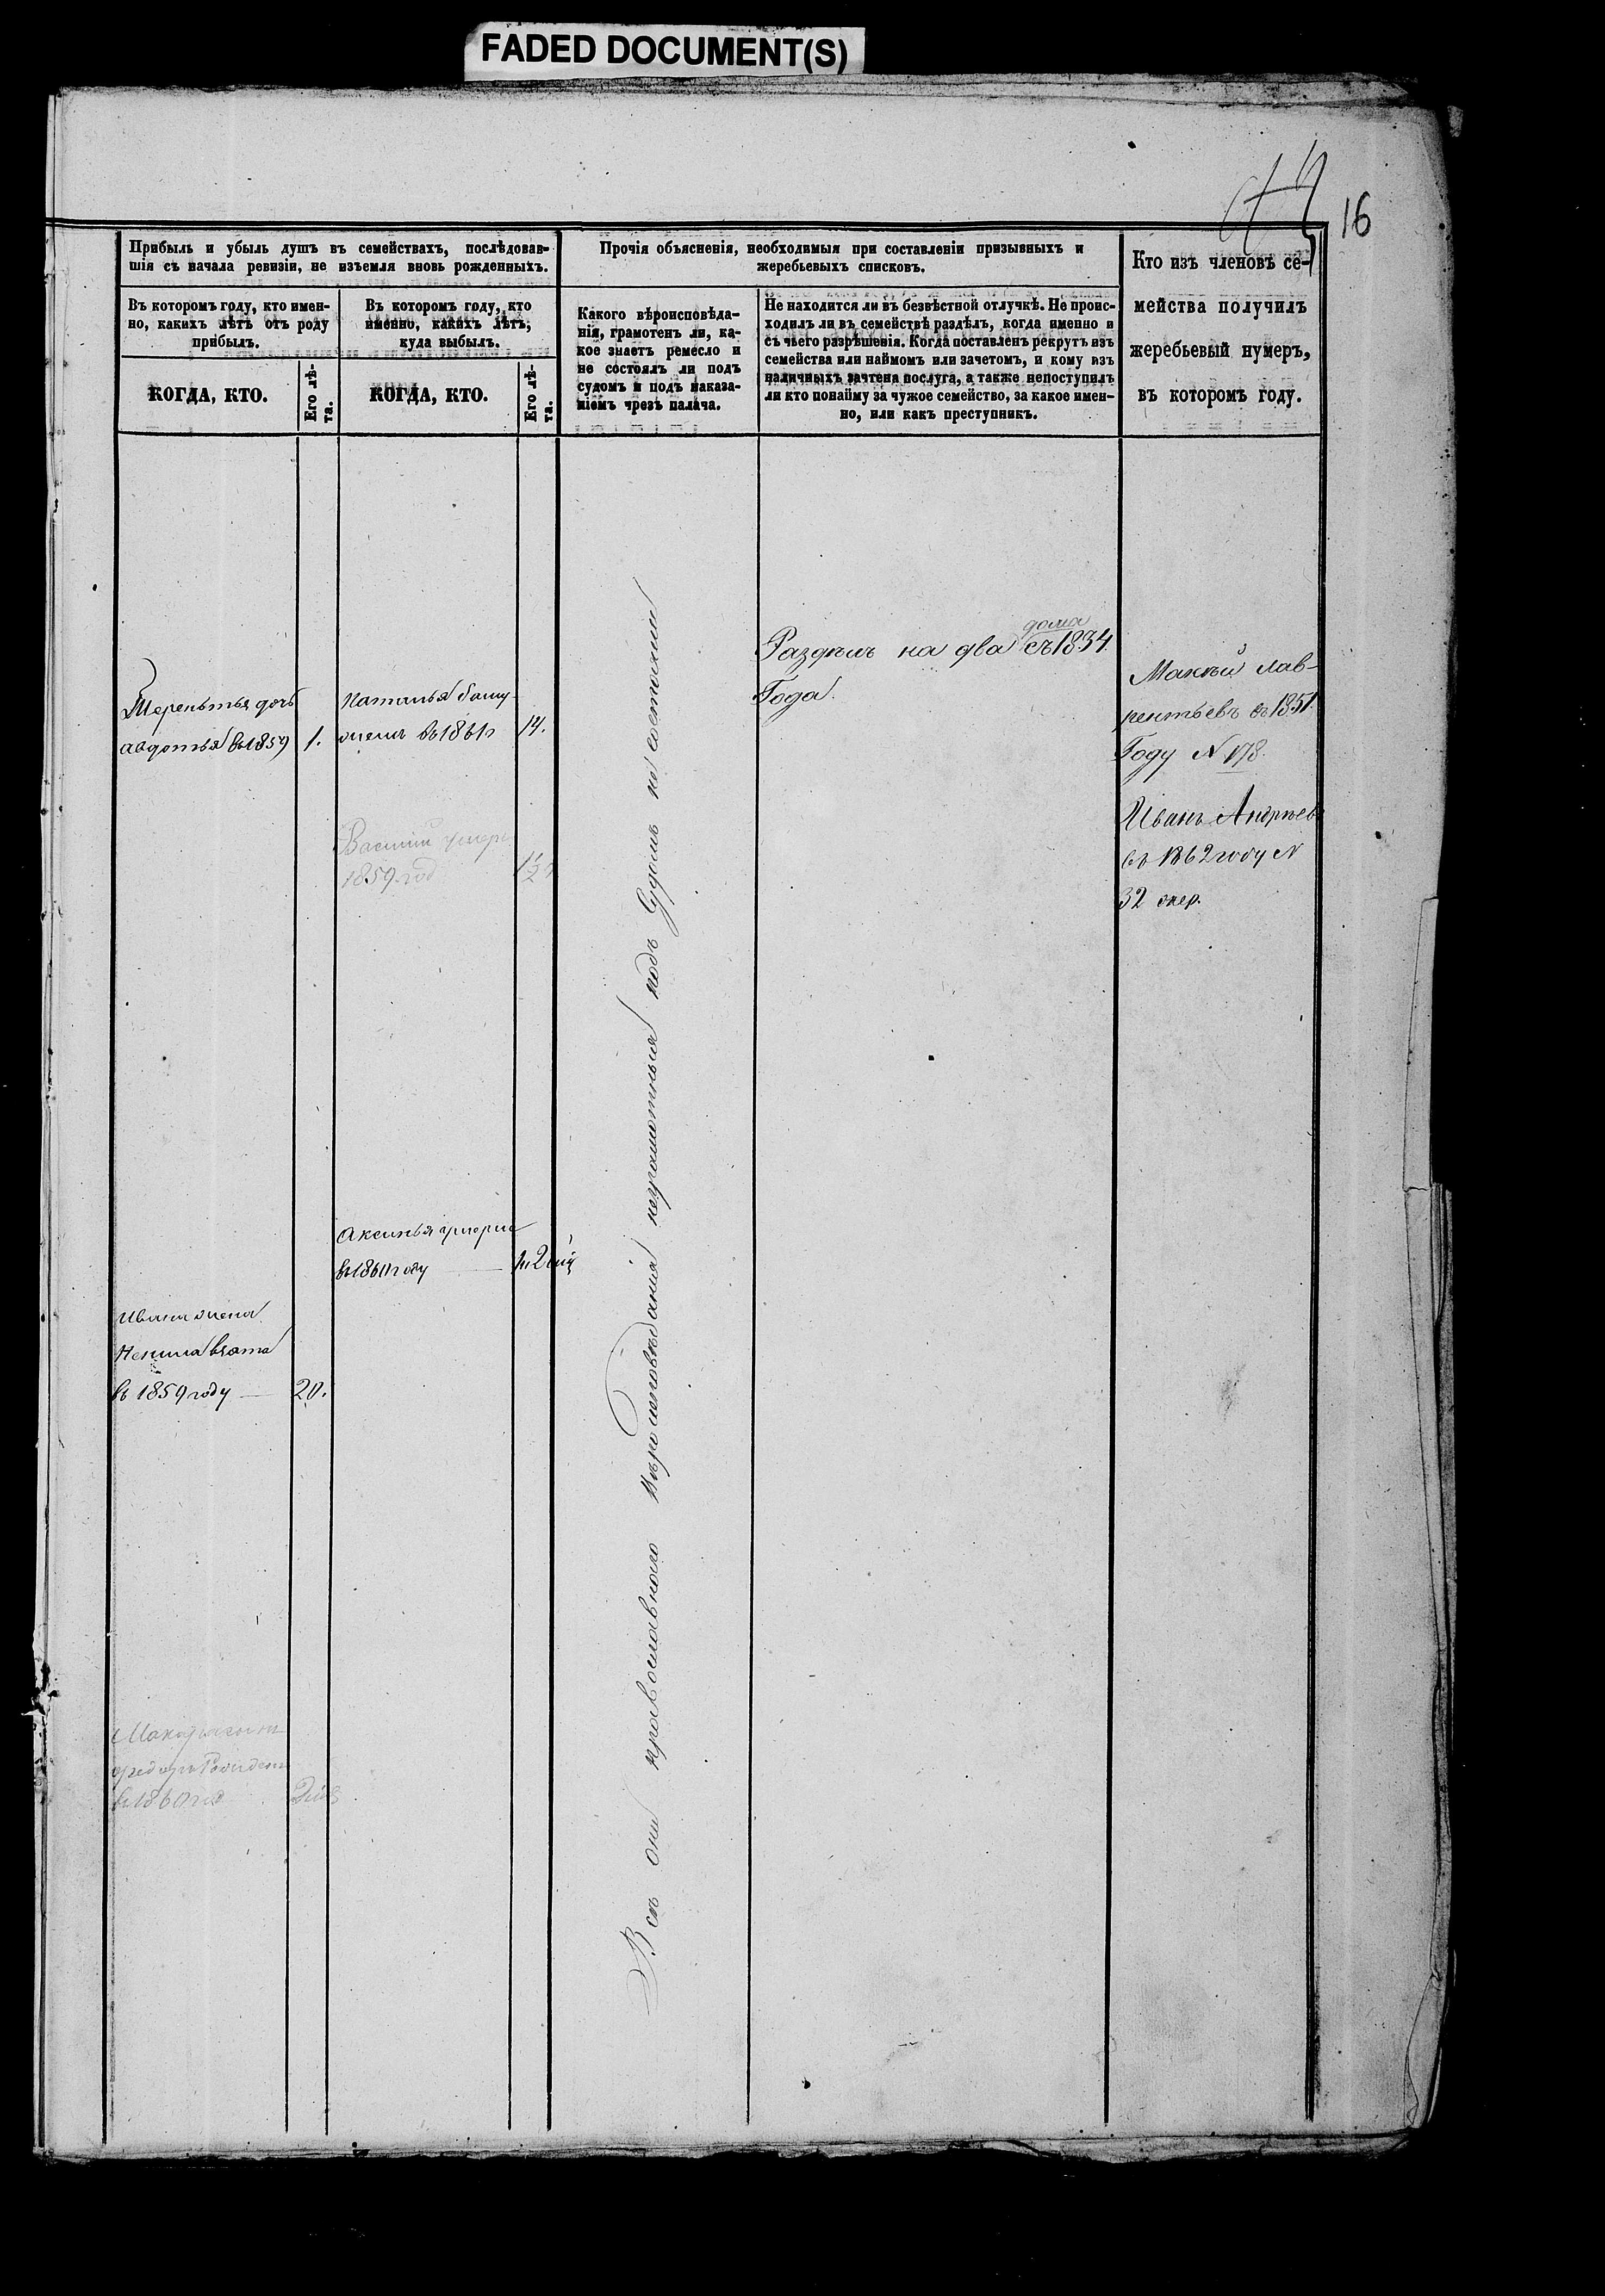 FADED DOCUMENT(S)
16
Прибыль и убыль душъ въ семействахъ, послѣдовав-
шія съ начала ревизіи, не изъемля вновь рожденныхъ.
Въ которомъ году, кто имен-
но, какихъ лѣтъ отъ роду
прибылъ.
КОГДА, КТО.
Его лѣ-
та.
Въ которомъ году, кто
именно, какихъ лѣтъ,
куда выбылъ.
КОГДА, КТО.
Его лѣ-
та.
Прочія объясненія, необходимыя при составленіи призывныхъ и
жеребьевыхъ списковъ.
Какого вѣроисповѣда-
нія, грамотенъ ли, ка-
кое знаетъ ремесло и
не состоялъ ли подъ
судомъ и подъ наказа-
ніемъ чрезъ палача.
Не находится ли въ безвѣстной отлучкѣ. Не проис-
ходилъ ли въ семействѣ раздѣлъ, когда именно и
съ чьего разрѣшенія. Когда поставленъ рекрутъ изъ
семейства или наймомъ или зачетомъ, и кому изъ
наличныхъ зачтена послуга, а также непоступилъ
ли кто понайму за чужое семейство, за какое имен-
но, или какъ преступникъ.
Кто изъ членовъ се-
мейства получилъ
жеребьевый нумеръ,
въ которомъ году.
Терентья дочь
авдотья въ 1859 1.
Наталья
въ 1861 14.
Василий умеръ
1859 год 1 1/2
Аксинья умерла
въ 1860 году
Ивана жена
взята
въ 1859 году — 20.
въ 1860 год
Всѣ они православнаго вѣроисповѣдания неграмотныя подъ Судомъ не состояли
дома
Раздѣлъ на два съ 1834
Года.
Мокѣй Лав-
рентьевъ въ 1851
Году N 178.
Иванъ Андреев
въ 1862 году N
32 жер.